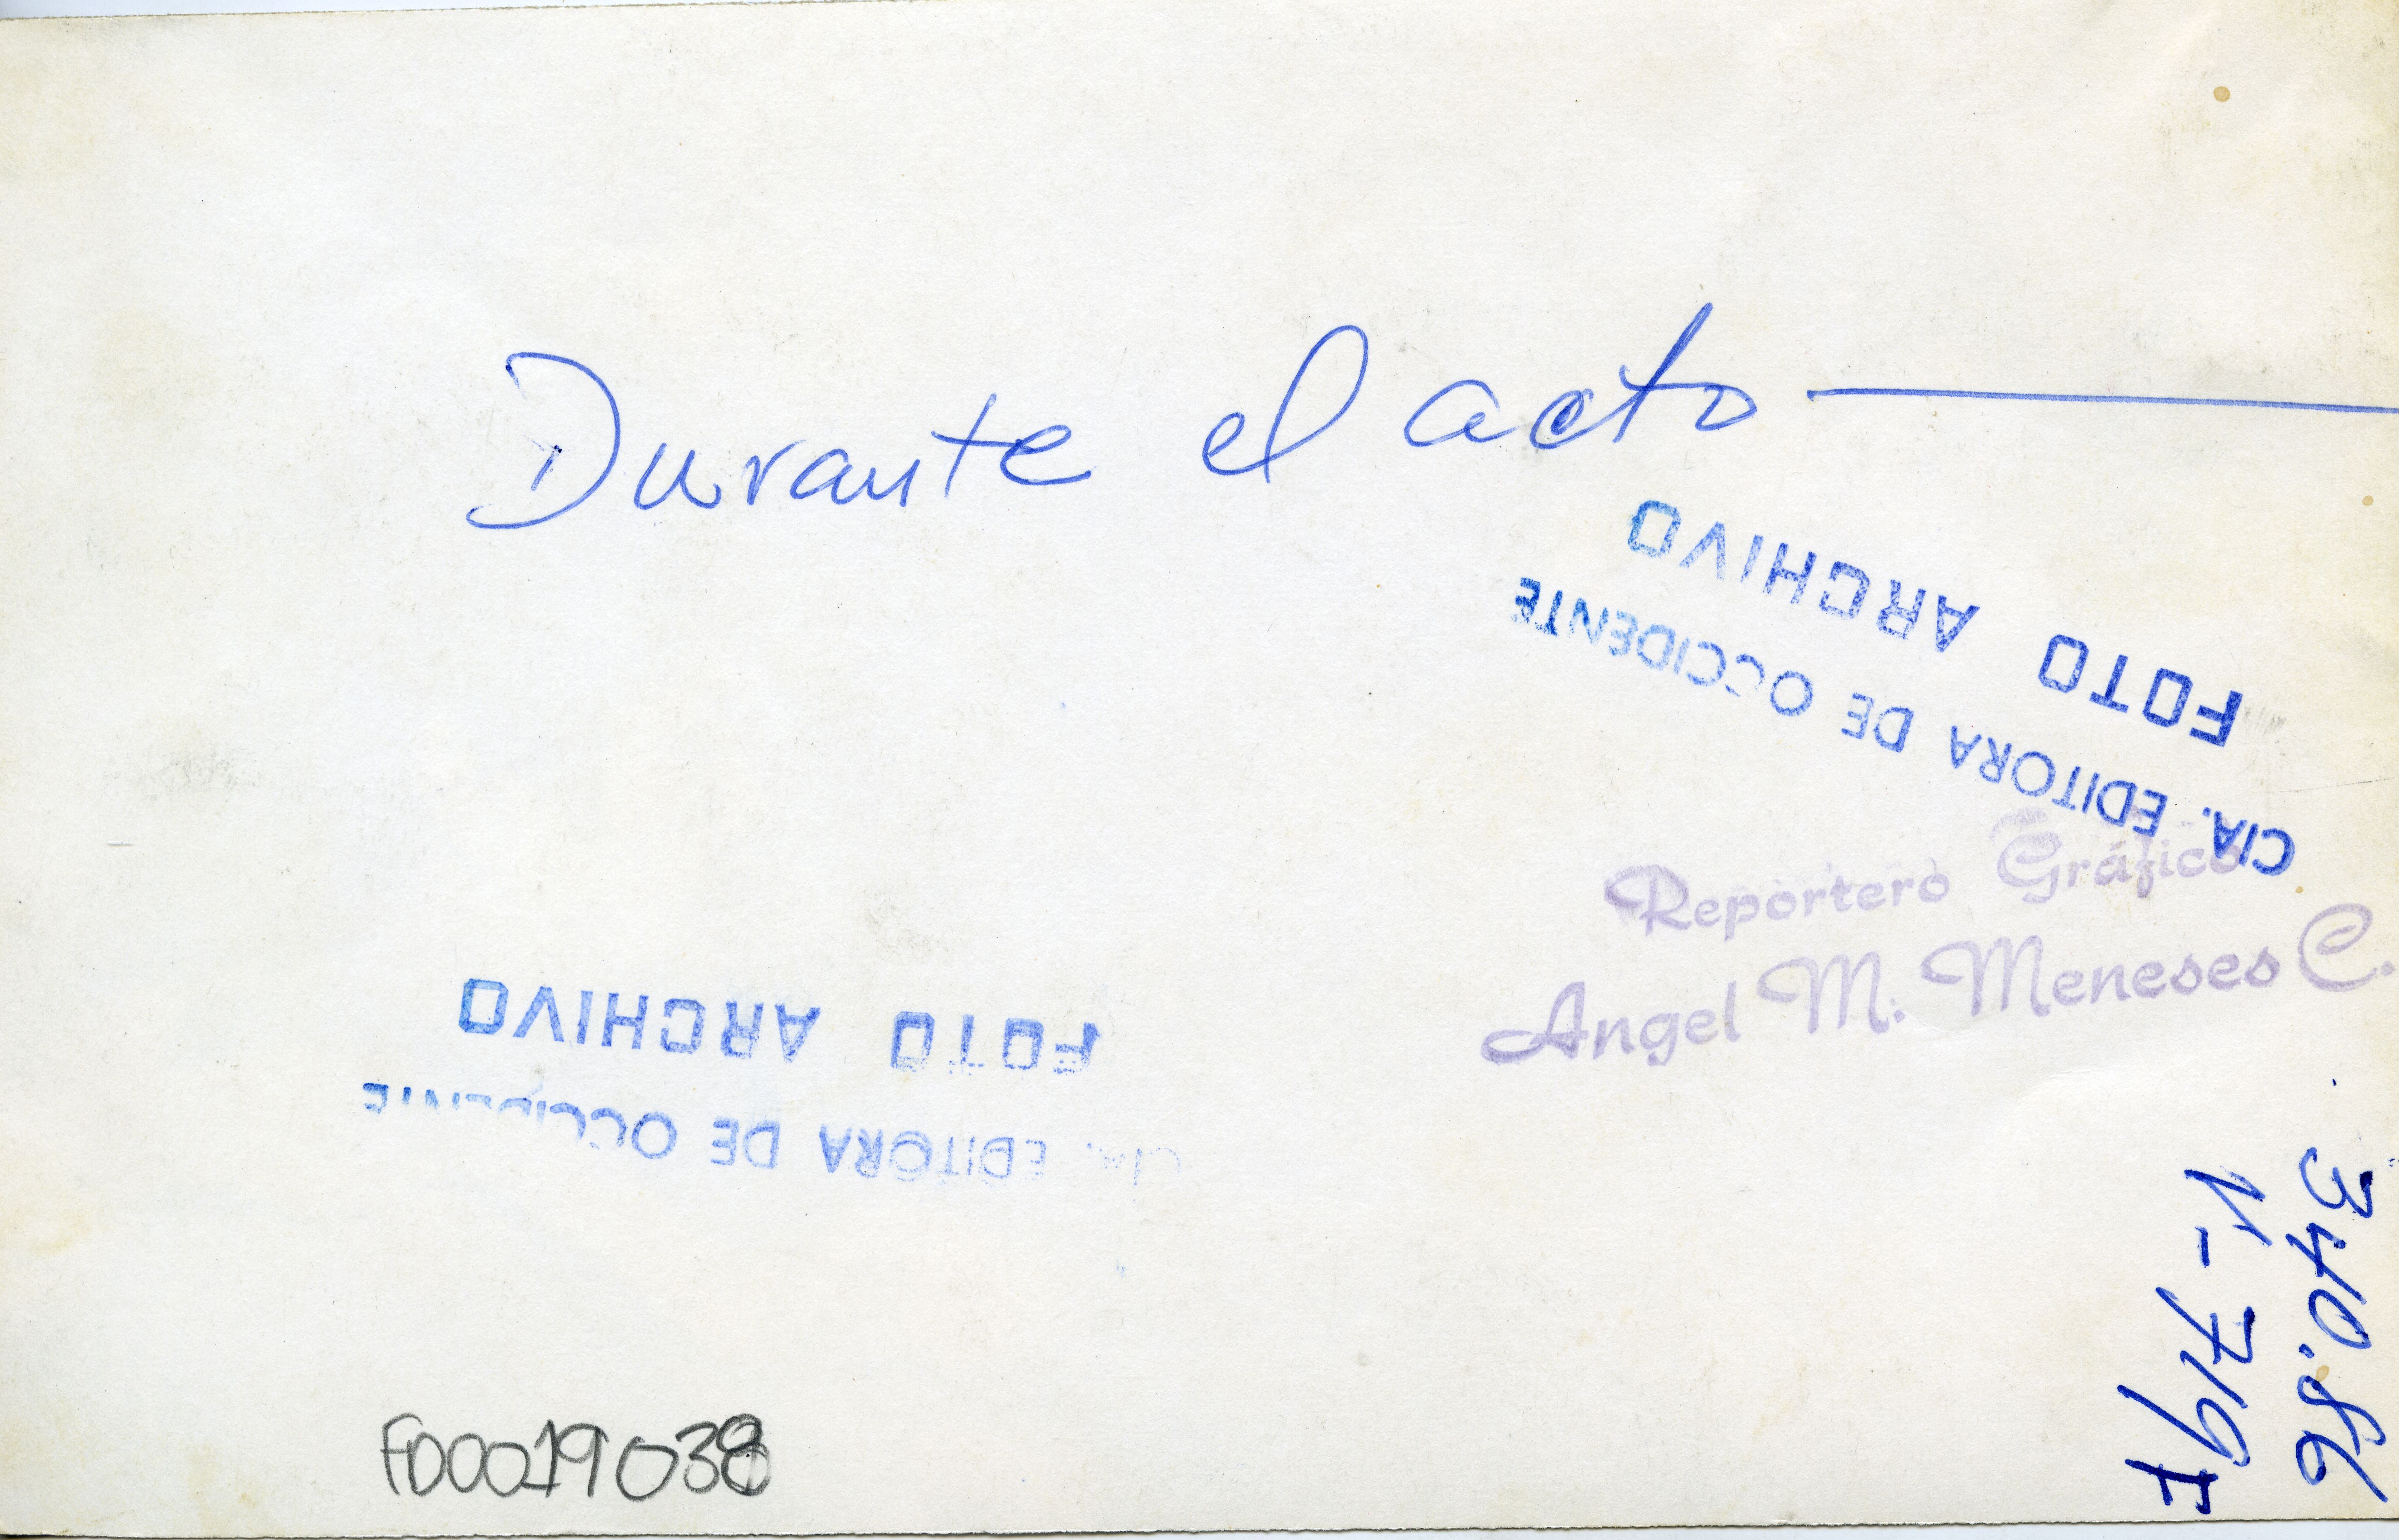 Durante el acto
FOTO ARCHIVO
CIA. EDITORA DE OCCIDENTE
Reportero Gráfico
Angel M. Meneses C.
FOTO ARCHIVO
CIA. EDITORA DE OCCIDENTE
340.86
V-719I
FD0019038